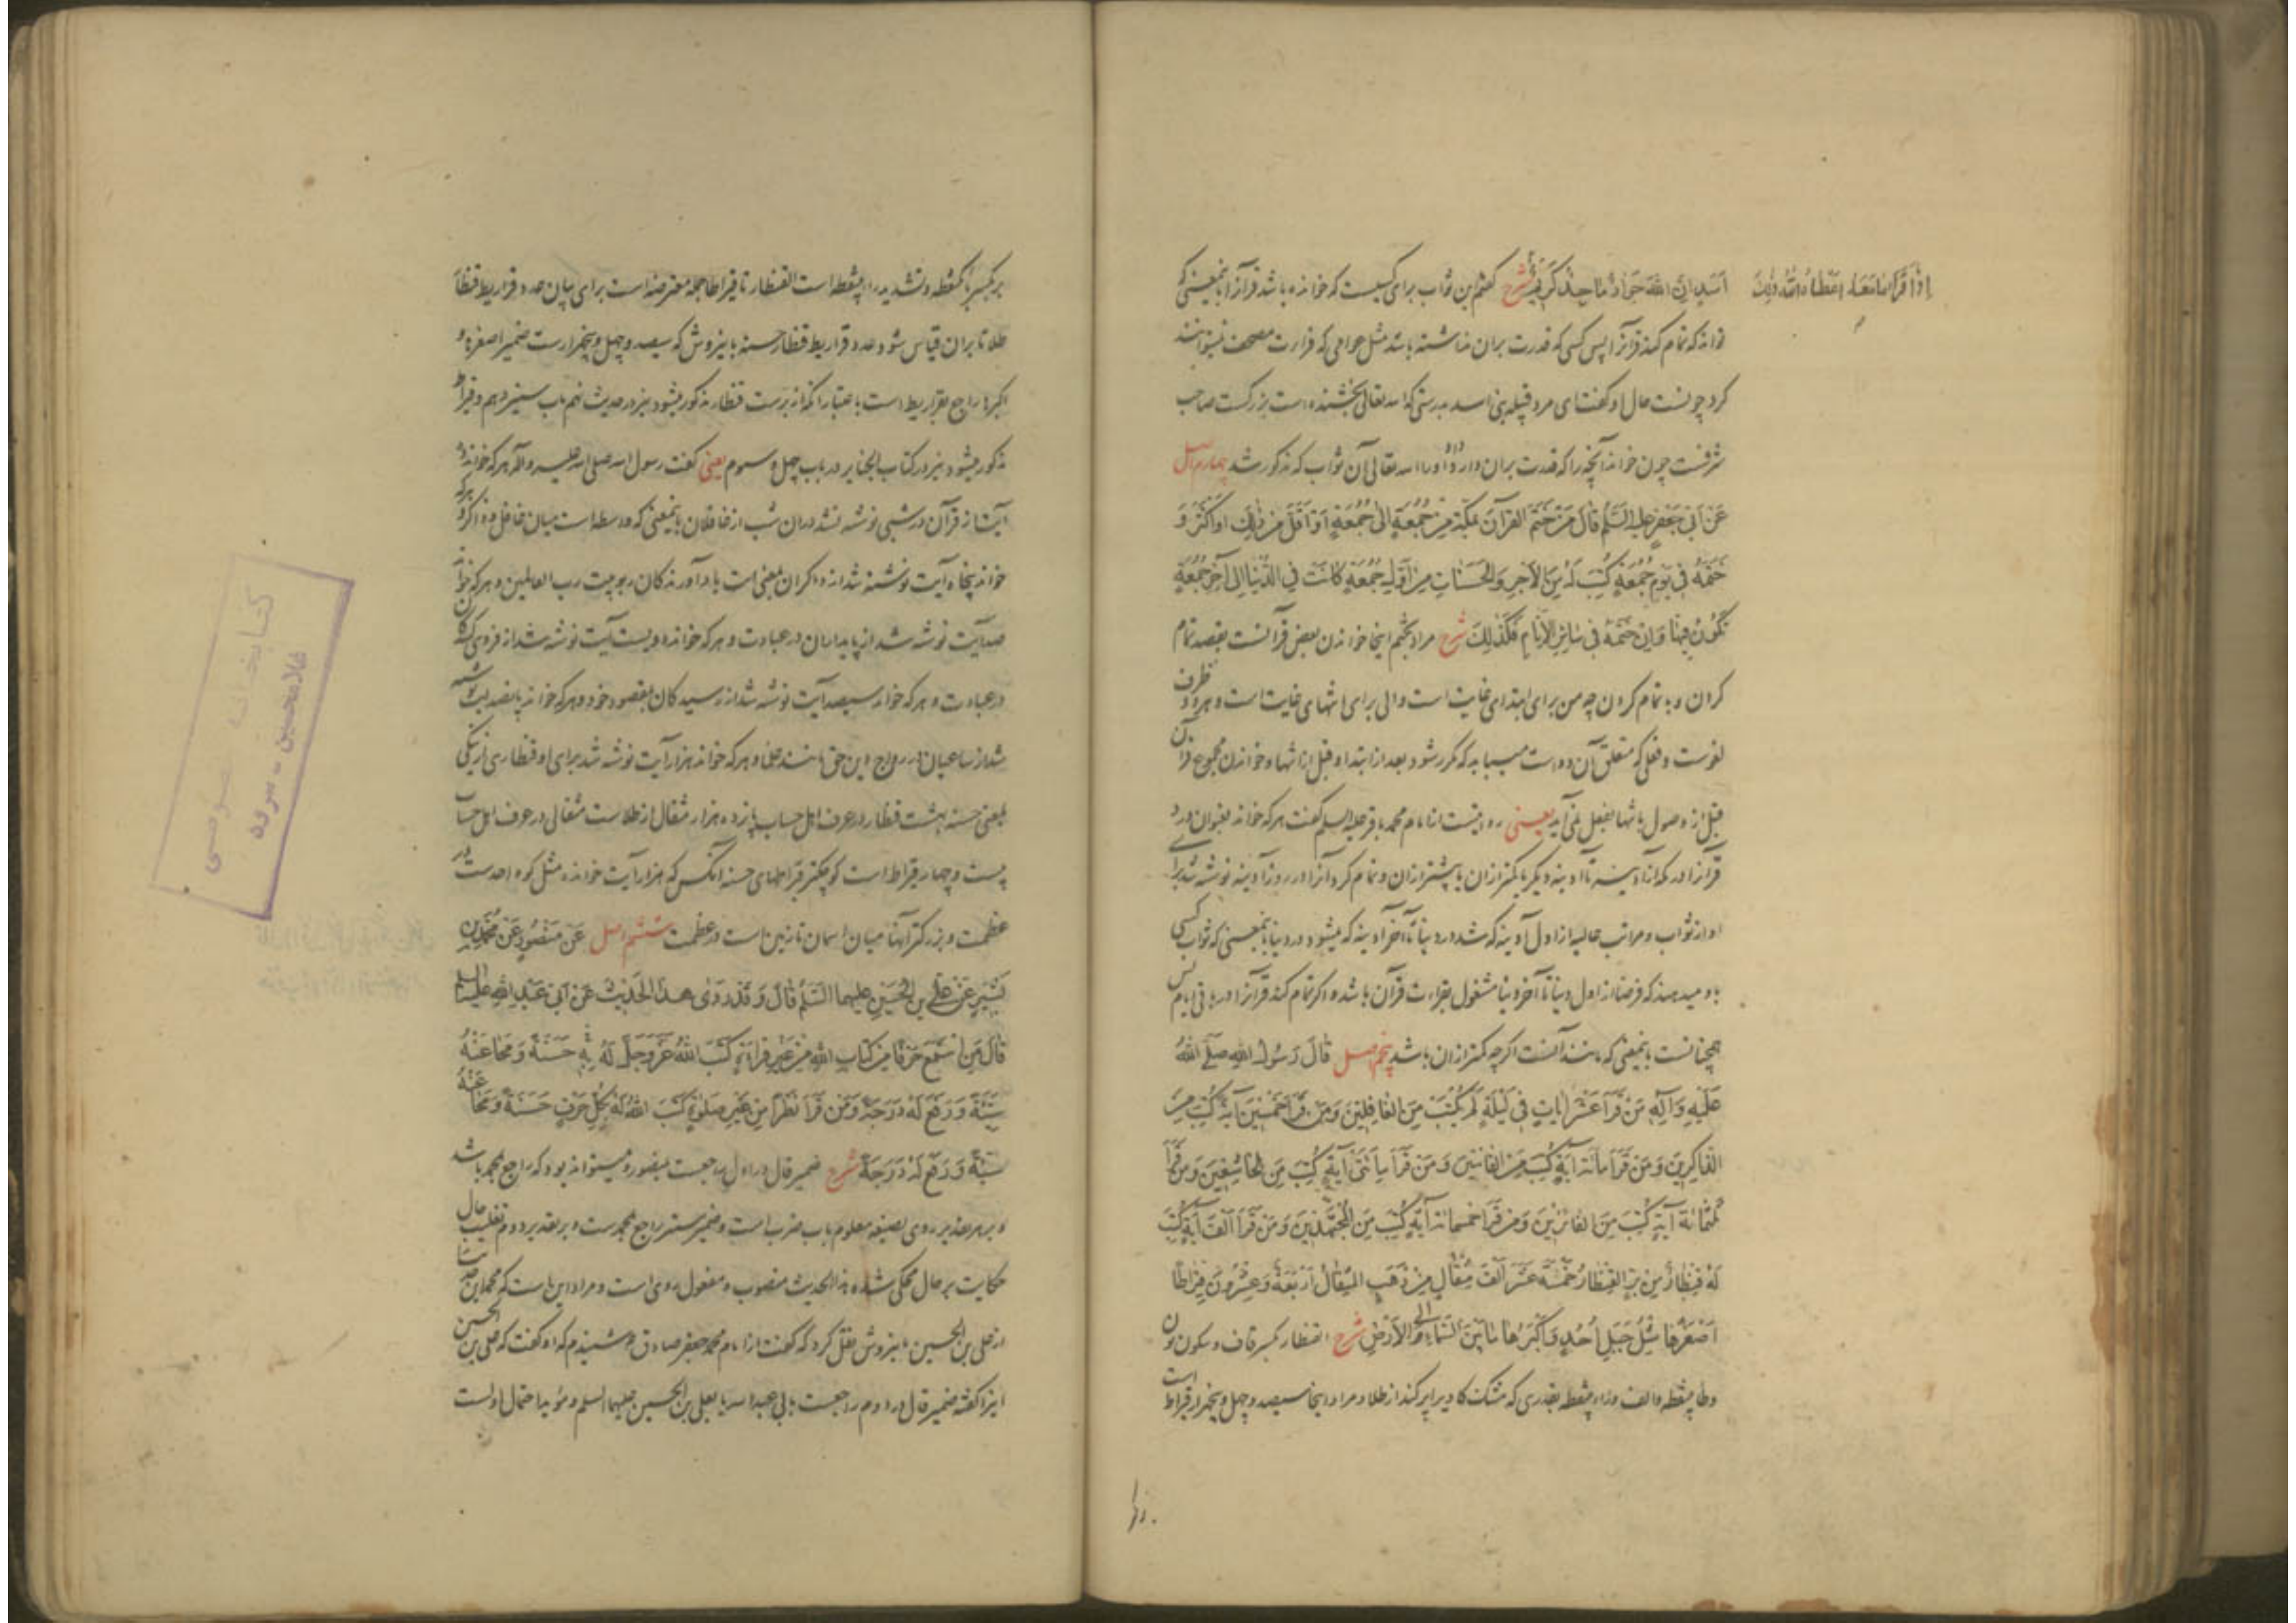 اسد ان الله جواد ماجد کریم شرح گفتم این ثواب برای کیست که خوانده باشد قرآنرا بمعنی که
تواند که تمام کند قرآنرا پس کسی که قدرت بران نداشته باشد مثل عوامی که قراءت مصحف نمیتوانند
کرد چونست حال او گفت ای مرد قبیله بنی اسد بدرستی که الله تعالی بخشنده است بزرگست صاحب
شرفست چون خواند آنچه را که قدرت بران دارد داد او را الله تعالی آن ثواب که مذکور شد چهارم اصل
عَنْ اَبی جَعْفَرٍ علیه السَّلم قالَ مَنْ خَتَمَ القرآنَ بمَکَّةَ مِنْ جُمُعَةٍ اِلی جُمُعَةٍ اَوْ اَقَلَّ مِنْ ذٰلِکَ اَو اَکْثَرَ وَ
خَتَمَهُ فی یَومِ جُمُعَةٍ کُتِبَ لَهُ مِنَ الاَجرِ وَالحَسَناتِ مِنْ اَوَّلِ جُمُعَةٍ کانَتْ فِی الدُّنیا اِلی آخِرِ جُمُعَةٍ
تَکُونُ فیها وَاِنْ خَتَمَهُ فی سائِرِ الاَیّامِ فَکَذٰلِکَ شرح مراد بختم اینجا خواندن بعض قرآنست بقصد تمام
کردن و به تمام کردن چه من برای ابتدای غایت است والی برای انتهای غایت است و هر دو ظرف
لغوست و فعلی که متعلق آن دو است میباید که مکرر شود بعد از ابتدا و قبل از انتها و خواندن مجموع قرآن
قبل از وصول بانتها بفعل نمی آید یعنی روایتست از امام محمد باقر علیه السلم گفت هر که خواند بعنوان ورد
قرآنرا در مکه از آدینه تا آدینه دیگر یا کمتر ازان یا بیشتر ازان و تمام کرد آنرا در روز آدینه نوشته شد برای
او از ثواب و مراتب عالیه از اول آدینه که شد در دنیا تا آخر آدینه که میشود در دنیا بمعنی که ثواب کسی
باو میدهند که فرضا از اول دنیا تا آخر دنیا مشغول بقراءت قرآن باشد و اگر تمام کند قرآنرا در باقی ایام پس
همچنانست بمعنی که مانند آنست اگر چه کمتر ازان باشد پنجم اصل قالَ رَسُولُ اللهِ صَلَّی اللهُ
عَلَیْهِ وَآلِهِ مَنْ قَرَاَ عَشْرَ آیاتٍ فی لَیْلَةٍ لَمْ یُکْتَبْ مِنَ الغافِلینَ وَمَنْ قَرَاَ خَمْسینَ آیَةً کُتِبَ مِنَ
الذّاکِرینَ وَمَنْ قَرَاَ مِاَئةَ آیَةٍ کُتِبَ مِنَ القانِتینَ وَمَنْ قَرَاَ مِاَتَیْ آیَةٍ کُتِبَ مِنَ الخاشِعینَ وَمَنْ قَرَاَ
ثَلٰثَمِائَةَ آیَةٍ کُتِبَ مِنَ الفائِزینَ وَمَنْ قَرَاَ خَمْسَمِائَةَ آیَةٍ کُتِبَ مِنَ المُجْتَهِدینَ وَمَنْ قَرَاَ اَلْفَ آیَةٍ کُتِبَ
لَهُ قِنْطارٌ مِنْ بِرٍّ القِنْطارُ خَمْسَةَ عَشَرَ اَلْفَ مِثْقالٍ مِنْ ذَهَبٍ المِثْقالُ اَرْبَعَةٌ وَعِشْرُونَ قیراطًا
اَصْغَرُها مِثْلُ جَبَلِ اُحُدٍ وَاَکْبَرُها ما بَیْنَ السَّماءِ الی الاَرْضِ شرح القنطار بکسر قاف و سکون نون
وطاء بینقطه والف وراء بینقطه بقدری که مشک گاو را پر کند از طلا و مراد اینجا سیصد و چهل و پنجهزار قیراط است
بر بکسر با یکنقطه وتشدید راء بینقطه است القنطار تا قیراطا جمله معترضه است برای بیان عدد قراریط قنطار
طلا تا بران قیاس شود عدد قراریط قنطار حسنه باینروش که سیصد و چهل و پنجهزارست ضمیر اصغرها و
اکبرها راجع بقراریط است باعتبار آنکه از برست قنطار مذکور میشود نیز در حدیث نهم باب سیزدهم و قیراط
مذکور میشود نیز در کتاب الجنایز در باب چهل و سوم یعنی گفت رسول الله صلی الله علیه وآله هر که خواند ده
آیت از قرآن در شبی نوشته نشد دران شب از غافلان بمعنی که واسطه است میان غافل و ذاکر و هر که
خواند پنجاه آیت نوشته شد از ذاکران بمعنی است یاد آورندگان ربوبیت رب العالمین و هر که خواند
صد آیت نوشته شد از پایداران در عبادت و هر که خوانده دویست آیت نوشته شد از فروتنی کنندگان
در عبادت و هر که خواند سیصد آیت نوشته شد از رسیدگان بمقصود خود و هر که خواند پانصد آیت نوشته
شد از ساعیان در رواج دین حق مانند علما و هر که خواند هزار آیت نوشته شد برای او قنطاری از نیکی
بمعنی حسنه بهشت قنطار در عرف اهل حساب پانزده هزار مثقال از طلاست مثقالی در عرف اهل حساب
بیست و چهار قیراط است کوچکتر قیراطهای حسنه آنکس که هزار آیت خوانده مثل کوه احدست در
عظمت و بزرگتر آنها میان اسمان تا زمین است در عظمت ششم اصل عَنْ مَنْصُورٍ عَنْ مُحَمَّدِ بْنِ
بَشیرٍ عَنْ عَلیِّ بنِ الحُسَینِ علیهما السَّلم قالَ وَقَدْ رَوی هٰذَا الحَدیثَ عَنْ اَبی عَبْدِ اللهِ علیه السلم
قالَ مَنِ اسْتَمَعَ حَرْفًا مِنْ کِتابِ اللهِ مِنْ غَیْرِ قِراءَةٍ کَتَبَ اللهُ عَزَّ وَجَلَّ لَهُ بِهِ حَسَنَةً وَمَحا عَنْهُ
سَیِّئَةً وَرَفَعَ لَهُ دَرَجَةً وَمَنْ قَرَاَ نَظَرًا مِنْ غَیْرِ صَلوةٍ کَتَبَ اللهُ لَهُ بِکُلِّ حَرْفٍ حَسَنَةً وَمَحا عَنْهُ
سَیِّئَةً وَرَفَعَ لَهُ دَرَجَةً شرح ضمیر قال در اول راجعست بمنصور و میتواند بود که راجع بمحمد باشد
و بر هر تقدیر روی بصیغه معلوم باب ضرب است و ضمیر مستتر راجع بمحمدست و بر تقدیر دوم تغلیب حال
حکایت بر حال محکی شده هذا الحدیث منصوب و مفعول روی است و مراد این است که محمد این حدیث را
از علی بن الحسین باینروش نقل کرد که گفت از امام محمد جعفر صادق شنیدم که او گفت که علی بن الحسین
اینرا گفته ضمیر قال در دوم راجعست بابی عبد الله یا بعلی بن الحسین علیهما السلم و مؤید احتمال اولست
کتابخانه خصوصی
غلامحسین - سرود